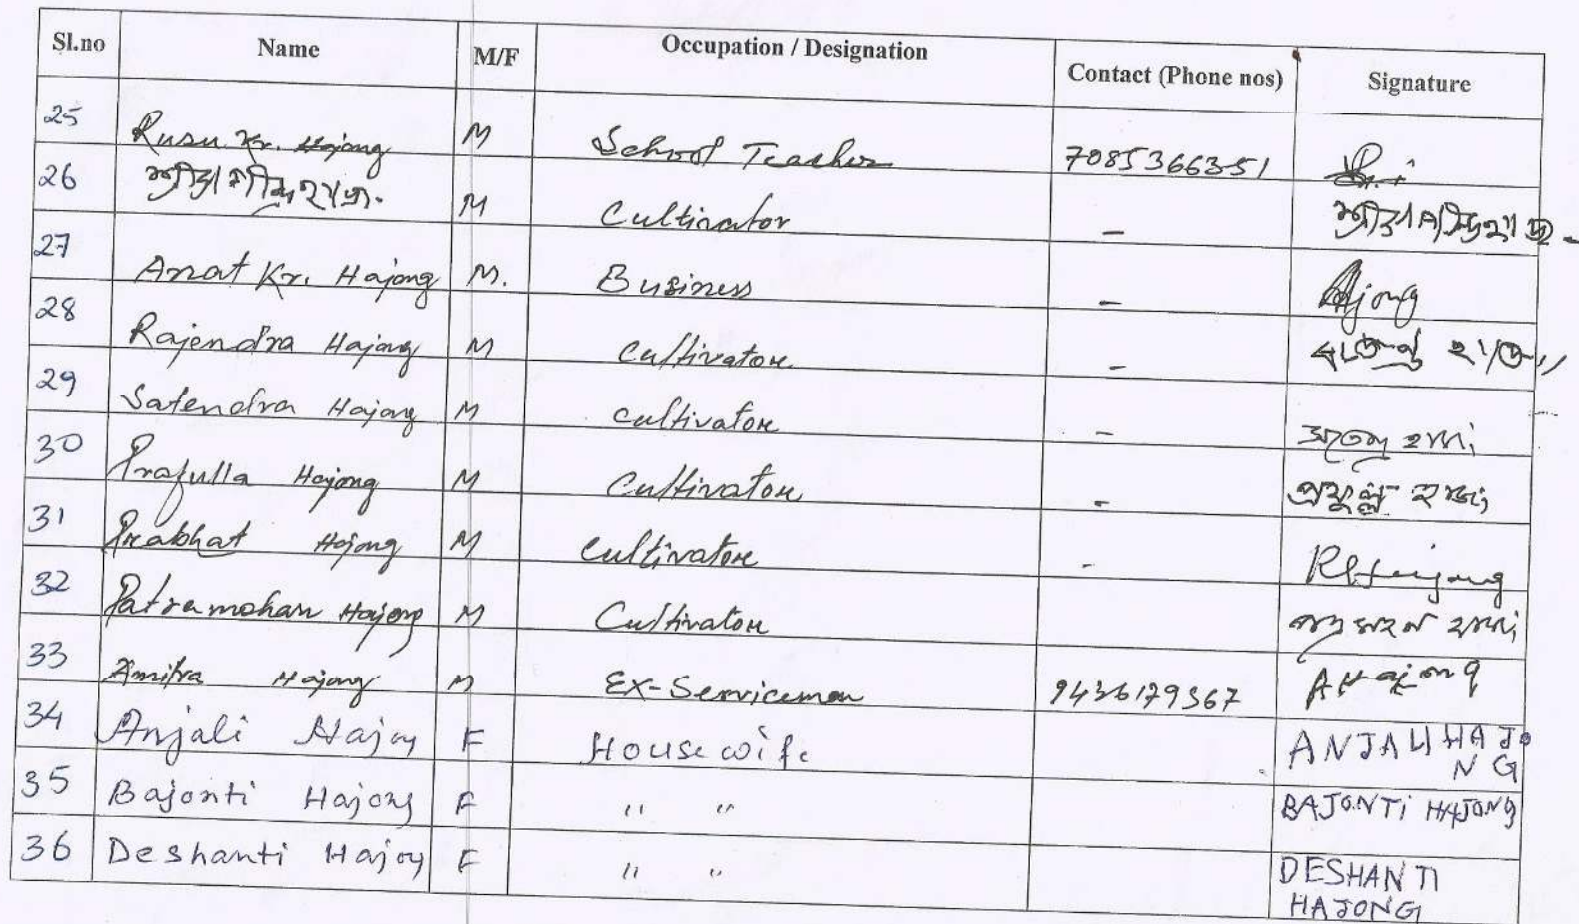 Sl.no Name M/F Occupation / Designation Contact (Phone nos) Signature
25 Rusu Kr. Hajong M School Teacher 7085366351
26 M Cultivator –
27 Anat Kr. Hajong M. Business – Hajong
28 Rajendra Hajong M Cultivator –
29 Satendra Hajong M Cultivator –
30 Prafulla Hajong M Cultivator – প্রফুল্ল হাজং
31 Prabhat Hajong M Cultivator - PHajong
32 Patramohan Hajong M Cultivator
33 Amitra Hajong M Ex-Serviceman 9436179367 AHajong
34 Anjali Hajong F House wife ANJALI HAJO
NG
35 Bajonti Hajong F " " BAJONTi HAJONG
36 Deshanti Hajong F " " DESHANTI
HAJONG